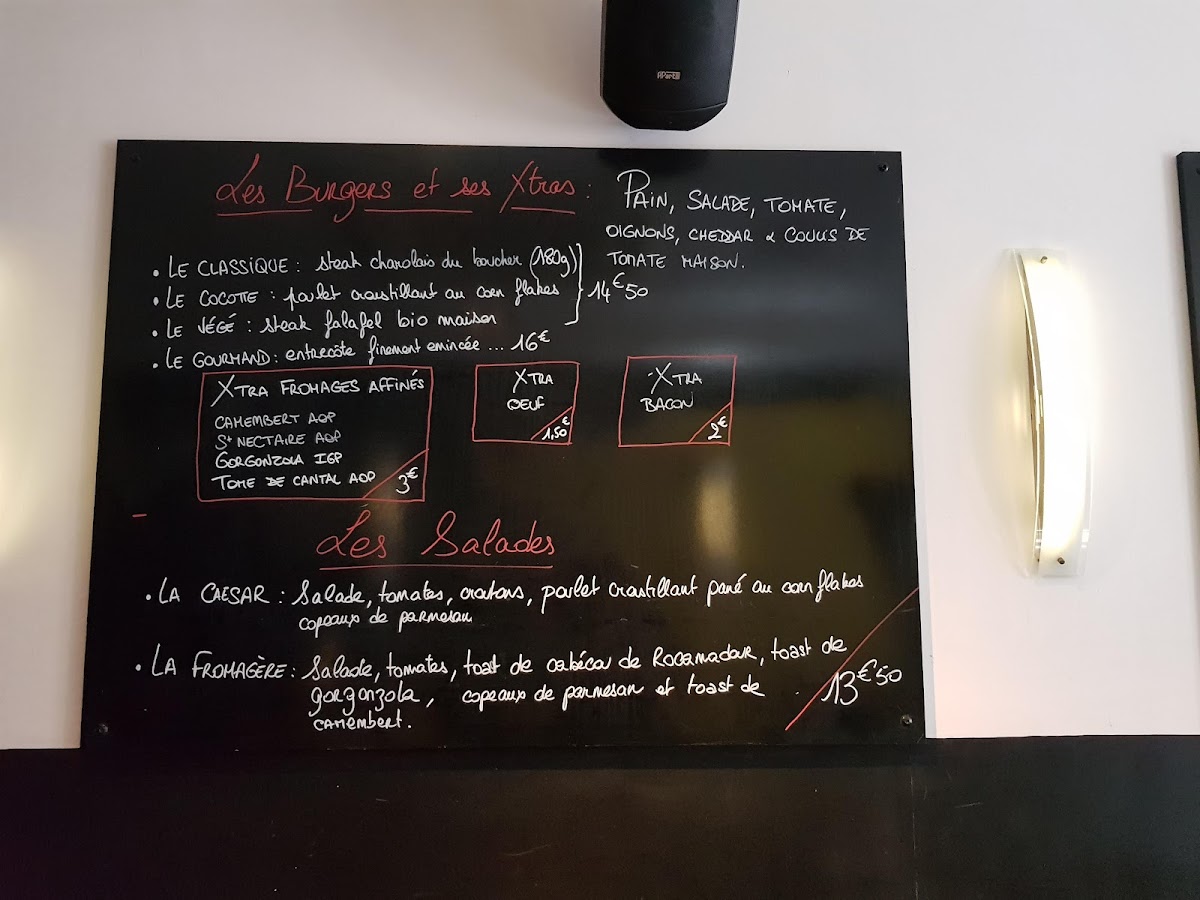 APart
Les Burgers et ses Xtras :
Pain, Salade, Tomate,
oignons, cheddar & coulis de
tomate maison.
• Le Classique : steak charolais du boucher (180g)
• Le Cocotte : poulet croustillant au corn flakes
14€50
• Le Végé : steak falafel bio maison
• Le Gourmand : entrecôte finement emincée ... 16€
Xtra Fromages Affinés
Camembert AOP
St Nectaire AOP
Gorgonzola IGP
Tome de Cantal AOP
3€
Xtra
Oeuf
1,50€
Xtra
Bacon
2€
Les Salades
• La Caesar : Salade, tomates, croutons, poulet croustillant pané au corn flakes
copeaux de parmesan
• La Fromagère : Salade, tomates, toast de cabécou de Rocamadour, toast de
gorgonzola, copeaux de parmesan et toast de
camembert.
13€50